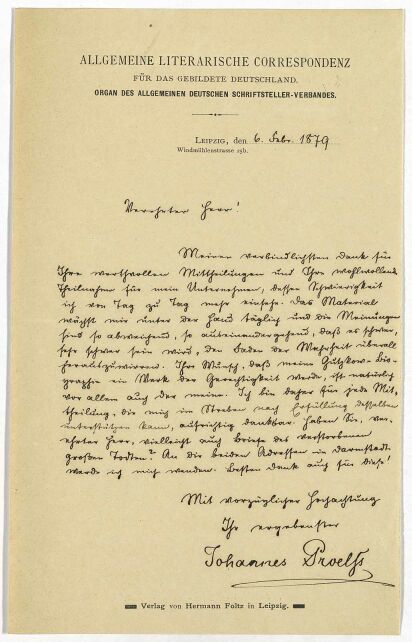 ALLGEMEINE LITERARISCHE CORRESPONDENZ
FÜR DAS GEBILDETE DEUTSCHLAND.
ORGAN DES ALLGEMEINEN DEUTSCHEN SCHRIFTSTELLER-VERBANDES.
LEIPZIG, den 6. Febr. 1879
Windmühlenstrasse 25b.
Verehrter Herr!
Meinen verbindlichsten Dank für
Ihre werthvollen Mittheilungen und Ihre wohlwollende
Theilnahme für mein Unternehmen, dessen Schwierigkeit
ich von Tag zu Tag mehr einsehe. Das Material
wächst mir unter der Hand täglich und die Meinungen
sind so abweichend, so auseinandergehend, daß es schwer,
sehr schwer sein wird, den Faden der Wahrheit überall
herauszuwirren. Ihr Wunsch, daß meine Gutzkow-Bio-
graphie ein Werk der Gerechtigkeit werde, ist natürlich
vor allem auch der meine. Ich bin daher für jede Mit-
theilung, die mich im Streben nach Erfüllung desselben
unterstützen kann, aufrichtig dankbar. Haben Sie, ver-
ehrter Herr, vielleicht auch Briefe des verstorbenen
großen Todten? An die beiden Adressen in Darmstadt
werde ich mich wenden. Besten Dank auch für diese!
Mit vorzüglicher Hochachtung
Ihr ergebenster
Johannes Proelß
Verlag von Hermann Foltz in Leipzig.